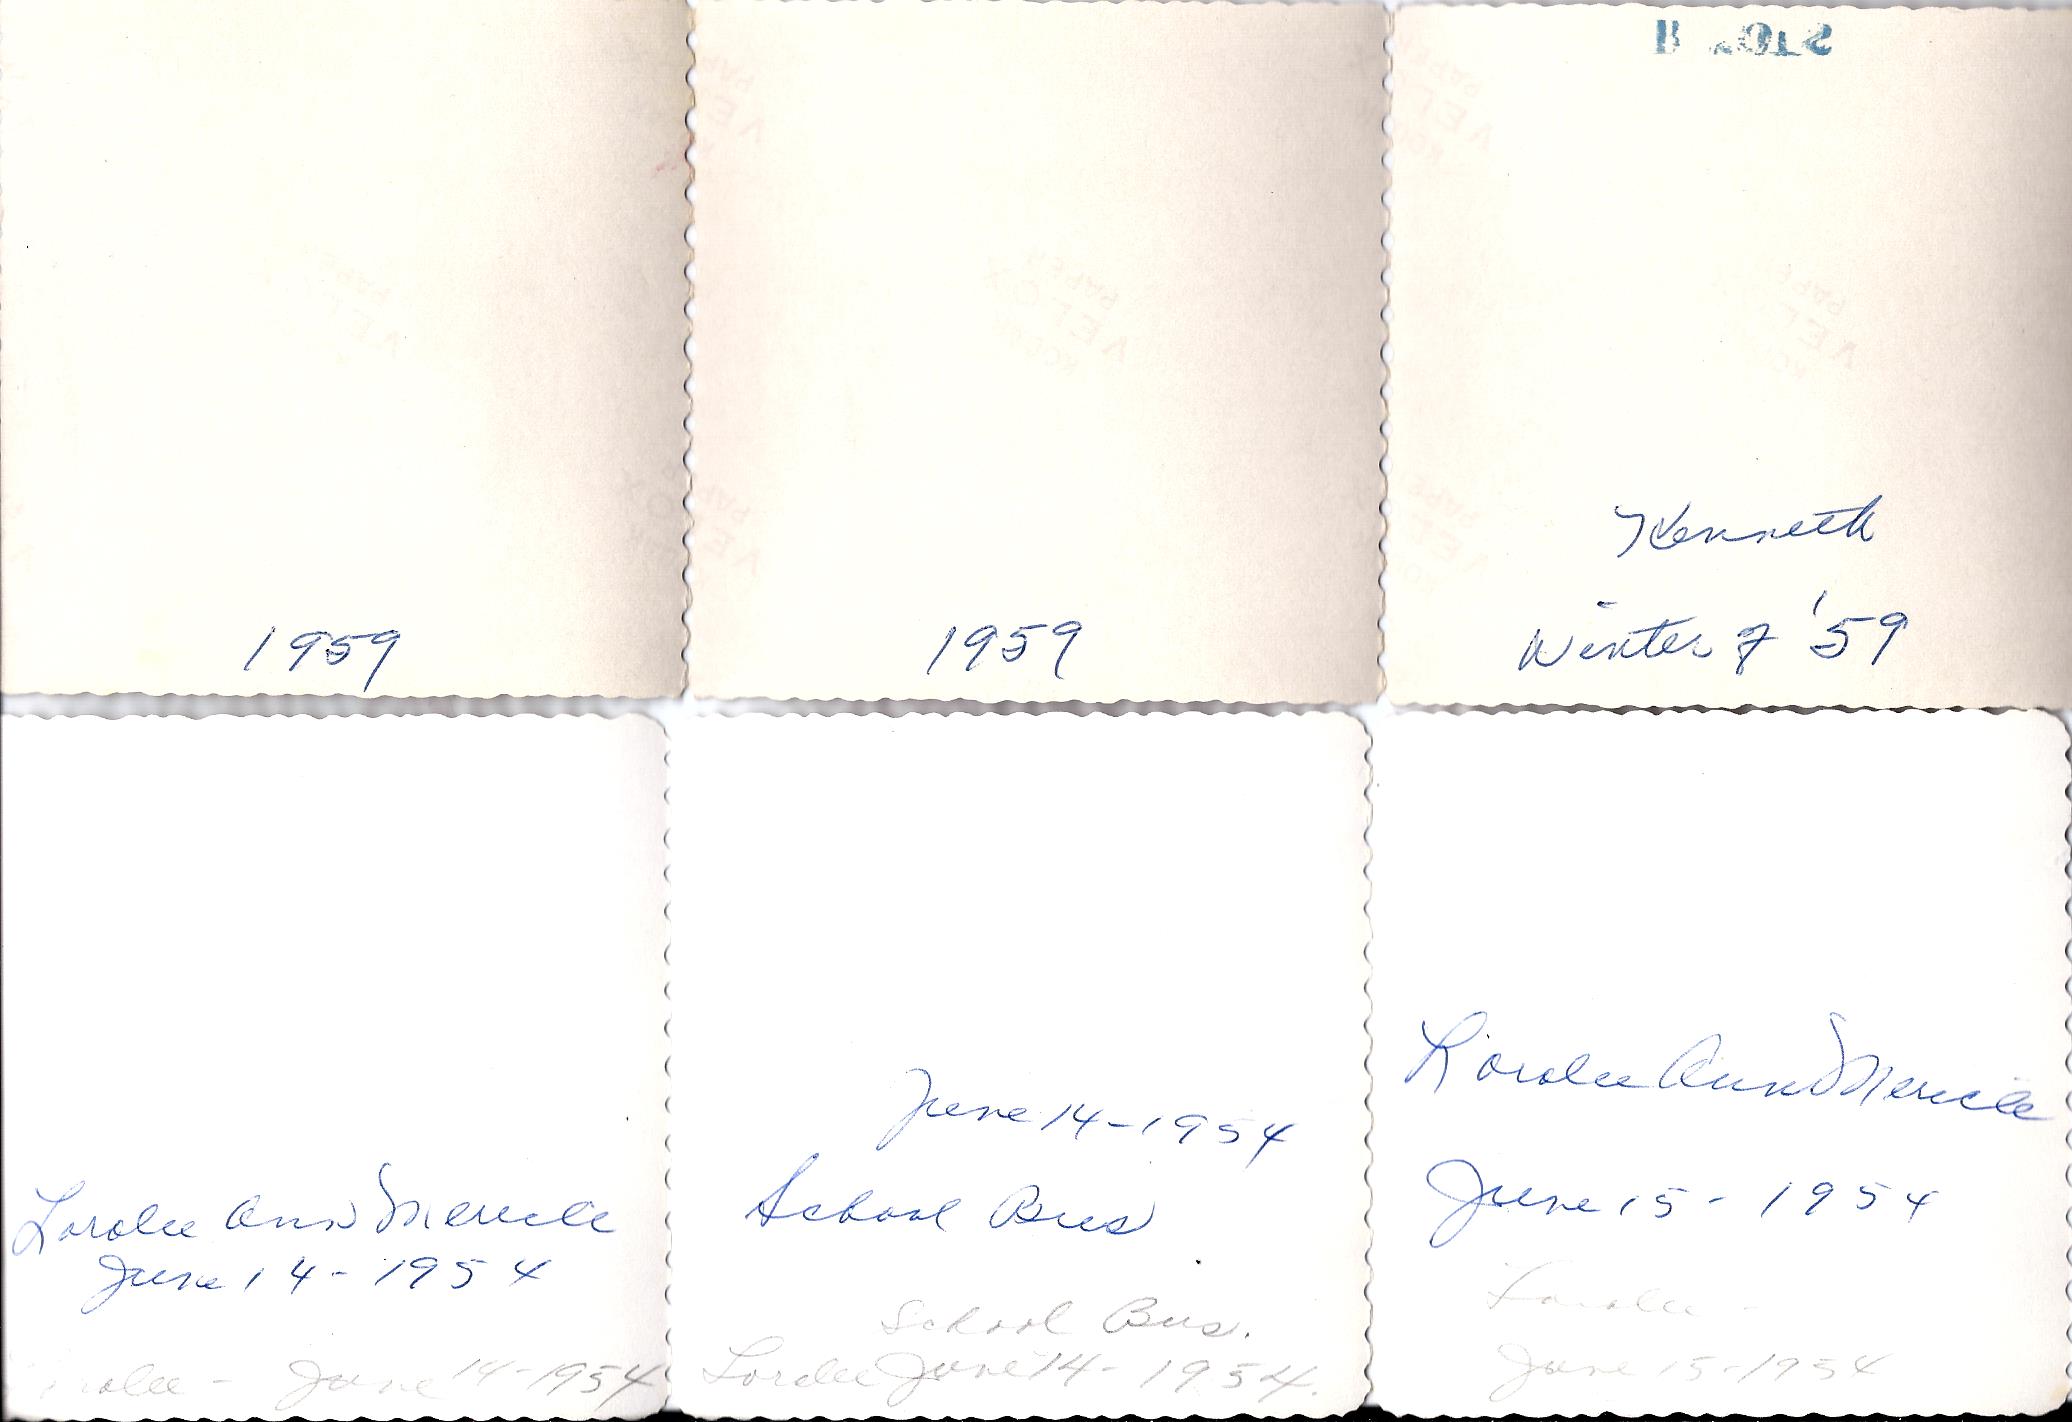 1959
1959
Kenneth
Winter of '59
Loralee Ann Mericle
June 14-1954
Loralee - June 14-1954
June 14-1954
School Bus
School Bus.
Loralee June 14-1954.
Loralee Ann Mericle
June 15-1954
Loralee -
June 15-1954
VELOX
PAPER